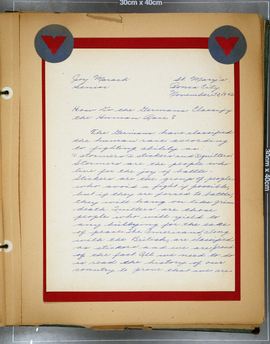 30cm x 40cm
Joy Marack St. Mary's
Senior Iowa City
November 21, 1942
How Do the Germans Classify
the Human Race?
The Germans have classified
the human race according
to fighting ability as
Stormers, Stickers and Quitters.
Stormers are the people who
live for the joy of battle.
Stickers are the group of people
who avoid a fight if possible,
but if they are forced to battle,
they will hang on like grim
death. Quitters are those
people who will yield to
any bullying for the sake
of peace. The Americans, along
with the British, are classified
as stickers and we are proud
of the fact. All we need to do
is read the history of our
country to prove that we are
30cm x 40cm